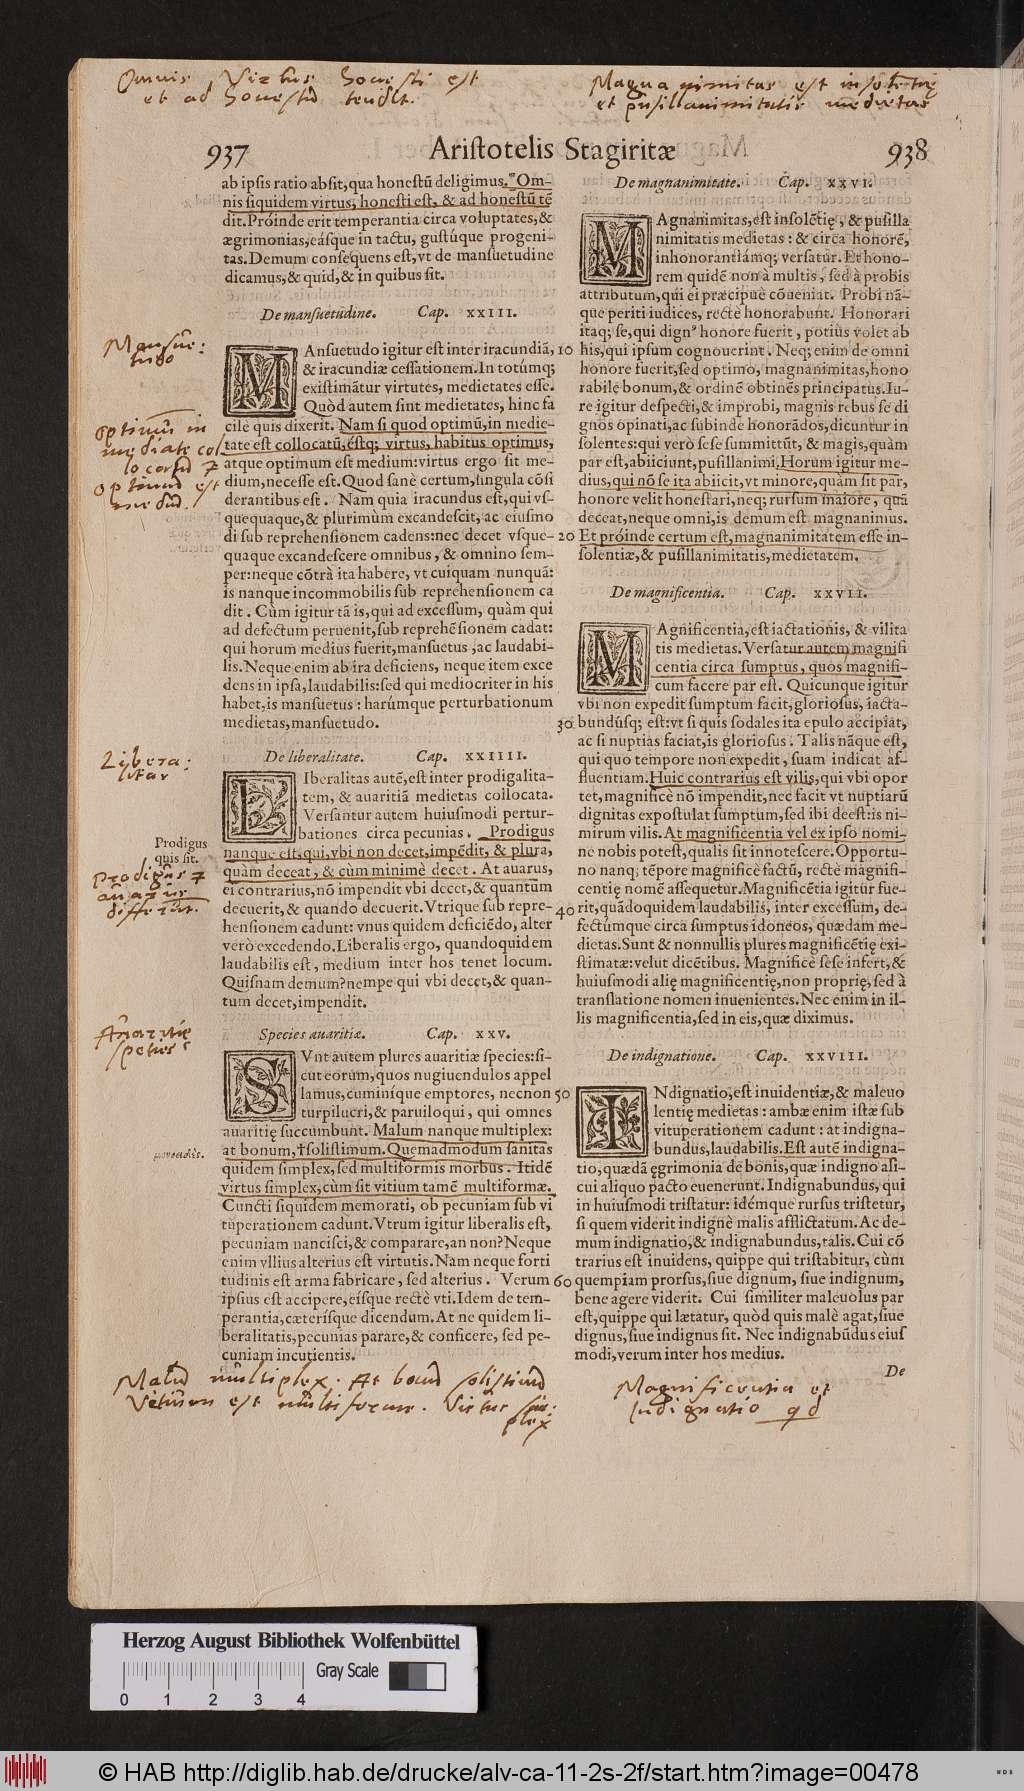 Omnis Virtus honesti est
et ad honestū tendit.
Magnanimitas est insolētię
et pusillanimitatis medietas
937
Aristotelis Stagiritæ
938
ab ipsis ratio absit, qua honestū deligimus. Om-
nis siquidem virtus, honesti est, & ad honestū tē
dit. Próinde erit temperantia circa voluptates, &
ægrimonias, eásque in tactu, gustúque progeni-
tas. Demum consequens est, vt de mansuetudine
dicamus, & quid, & in quibus sit.
De mansuetudine. Cap. XXIII.
Mansue:
tudo
MAnsuetudo igitur est inter iracundiā,
& iracundiæ cessationem. In totúmq;
existimātur virtutes, medietates esse.
Quòd autem sint medietates, hinc fa
cilè quis dixerit. Nam si quod optimū, in medie-
tate est collocatū, éstq; virtus, habitus optimus,
atque optimum est medium: virtus ergo sit me-
dium, necesse est. Quod sanè certum, singula cōsi
derantibus est. Nam quia iracundus est, qui vs-
quequaque, & plurimùm excandescit, ac eiusmo
di sub reprehensionem cadens: nec decet vsque-
quaque excandescere omnibus, & omnino sem-
per: neque cōtrà ita habere, vt cuiquam nunquā:
is nanque incommobilis sub reprehensionem ca
dit. Cùm igitur tā is, qui ad excessum, quàm qui
ad defectum peruenit, sub reprehēsionem cadat:
qui horum medius fuerit, mansuetus, ac laudabi-
lis. Neque enim ab ira deficiens, neque item exce
dens in ipsa, laudabilis: sed qui mediocriter in his
habet, is mansuetus: harúmque perturbationum
medietas, mansuetudo.
optimū in
mediate col
locatū &
optimū est
mediū.
De liberalitate. Cap. XXIIII.
Libera:
litas
LIberalitas autē, est inter prodigalita-
tem, & auaritiā medietas collocata.
Versantur autem huiusmodi pertur-
bationes circa pecunias. Prodigus
nanque est, qui, vbi non decet, impēdit, & plura,
quàm deceat, & cùm minimè decet. At auarus,
ei contrarius, nō impendit vbi decet, & quantùm
decuerit, & quando decuerit. Vtrique sub repre-
hensionem cadunt: vnus quidem deficiēdo, alter
verò excedendo. Liberalis ergo, quandoquidem
laudabilis est, medium inter hos tenet locum.
Quisnam demum? nempe qui vbi decet, & quan-
tum decet, impendit.
Prodigus
quis sit.
Prodigus &
auarus
differūt.
Species auaritiæ. Cap. XXV.
Auaritiæ
species
SVnt autem plures auaritiæ species: si-
cut eorum, quos nugiuendulos appel
lamus, cuminíque emptores, necnon
turpilucri, & paruiloqui, qui omnes
auaritię succumbunt. Malum nanque multiplex:
at bonum, †solistimum. Quemadmodum sanitas
quidem simplex, sed multiformis morbus. Itidē
virtus simplex, cùm sit vitium tamē multiformæ.
Cuncti siquidem memorati, ob pecuniam sub vi
tuperationem cadunt. Vtrum igitur liberalis est,
pecuniam nancisci, & comparare, an non? Neque
enim vllius alterius est virtutis. Nam neque forti
tudinis est arma fabricare, sed alterius. Verum
ipsius est accipere, eísque rectè vti. Idem de tem-
perantia, cæterísque dicendum. At ne quidem li-
beralitatis, pecunias parare, & conficere, sed pe-
cuniam incutientis.
μοναδίς.
Malū multiplex. At bonū solistimū
Vitium est multiforme. Virtus sim:
plex
10
20
30
40
50
60
De magnanimitate. Cap. XXVI.
MAgnanimitas, est insolētię, & pusilla
nimitatis medietas: & circa honorē,
inhonorantiámq; versatur. Et hono-
rem quidē non à multis, sed à probis
attributum, qui ei præcipuè cōueniat. Probi nā-
que periti iudices, rectè honorabunt. Honorari
itaq; se, qui dignꝰ honore fuerit, potiùs volet ab
his, qui ipsum cognouerint. Neq; enim de omni
honore fuerit, sed optimo, magnanimitas, hono
rabilę bonum, & ordinē obtinēs principatus. Iu-
re igitur despecti, & improbi, magnis rebus se di
gnos opinati, ac subinde honorādos, dicuntur in
solentes: qui verò se se summittūt, & magis, quàm
par est, abiiciunt, pusillanimi. Horum igitur me-
dius, qui nō se ita abiicit, vt minore, quàm sit par,
honore velit honestari, neq; rursum maiore, quā
deceat, neque omni, is demum est magnanimus.
Et próinde certum est, magnanimitatem esse in-
solentiæ, & pusillanimitatis, medietatem.
De magnificentia. Cap. XXVII.
MAgnificentia, est iactationis, & vilita
tis medietas. Versatur autem magnifi
centia circa sumptus, quos magnifi-
cum facere par est. Quicunque igitur
vbi non expedit sumptum facit, gloriosus, iacta-
bundúsq; est: vt si quis sodales ita epulo accipiat,
ac si nuptias faciat, is gloriosus. Talis nāque est,
qui quo tempore non expedit, suam indicat af-
fluentiam. Huic contrarius est vilis, qui vbi opor
tet, magnificè nō impendit, nec facit vt nuptiarū
dignitas expostulat sumptum, sed ibi deest: is ni-
mirum vilis. At magnificentia vel ex ipso nomi-
ne nobis potest, qualis sit innotescere. Opportu-
no nanq; tēpore magnificè factū, rectè magnifi-
centię nomē assequetur. Magnificētia igitur fue-
rit, quādoquidem laudabilis, inter excessum, de-
fectúmque circa sumptus idoneos, quædam me-
dietas. Sunt & nonnullis plures magnificētię exi-
stimatæ: velut dicētibus. Magnificè sese infert, &
huiusmodi alię magnificentię, non proprię, sed à
translatione nomen inuenientes. Nec enim in il-
lis magnificentia, sed in eis, quæ diximus.
De indignatione. Cap. XXVIII.
INdignatio, est inuidentiæ, & maleuo
lentię medietas: ambæ enim istæ sub
vituperationem cadunt: at indigna-
bundus, laudabilis. Est autē indigna-
tio, quædā ęgrimonia de bonis, quæ indigno ali-
cui aliquo pacto euenerunt. Indignabundus, qui
in huiusmodi tristatur: idémque rursus tristetur,
si quem viderit indignè malis afflictatum. Ac de-
mum indignatio, & indignabundus, talis. Cui cō
trarius est inuidens, quippe qui tristabitur, cùm
quempiam prorsus, siue dignum, siue indignum,
bene agere viderit. Cui similiter maleuolus par
est, quippe qui lætatur, quòd quis malè agat, siue
dignus, siue indignus sit. Nec indignabūdus eius
modi, verum inter hos medius.
De
Magnificentia et
Indignatio qd
Herzog August Bibliothek Wolfenbüttel
Gray Scale
0 1 2 3 4
© HAB http://diglib.hab.de/drucke/alv-ca-11-2s-2f/start.htm?image=00478